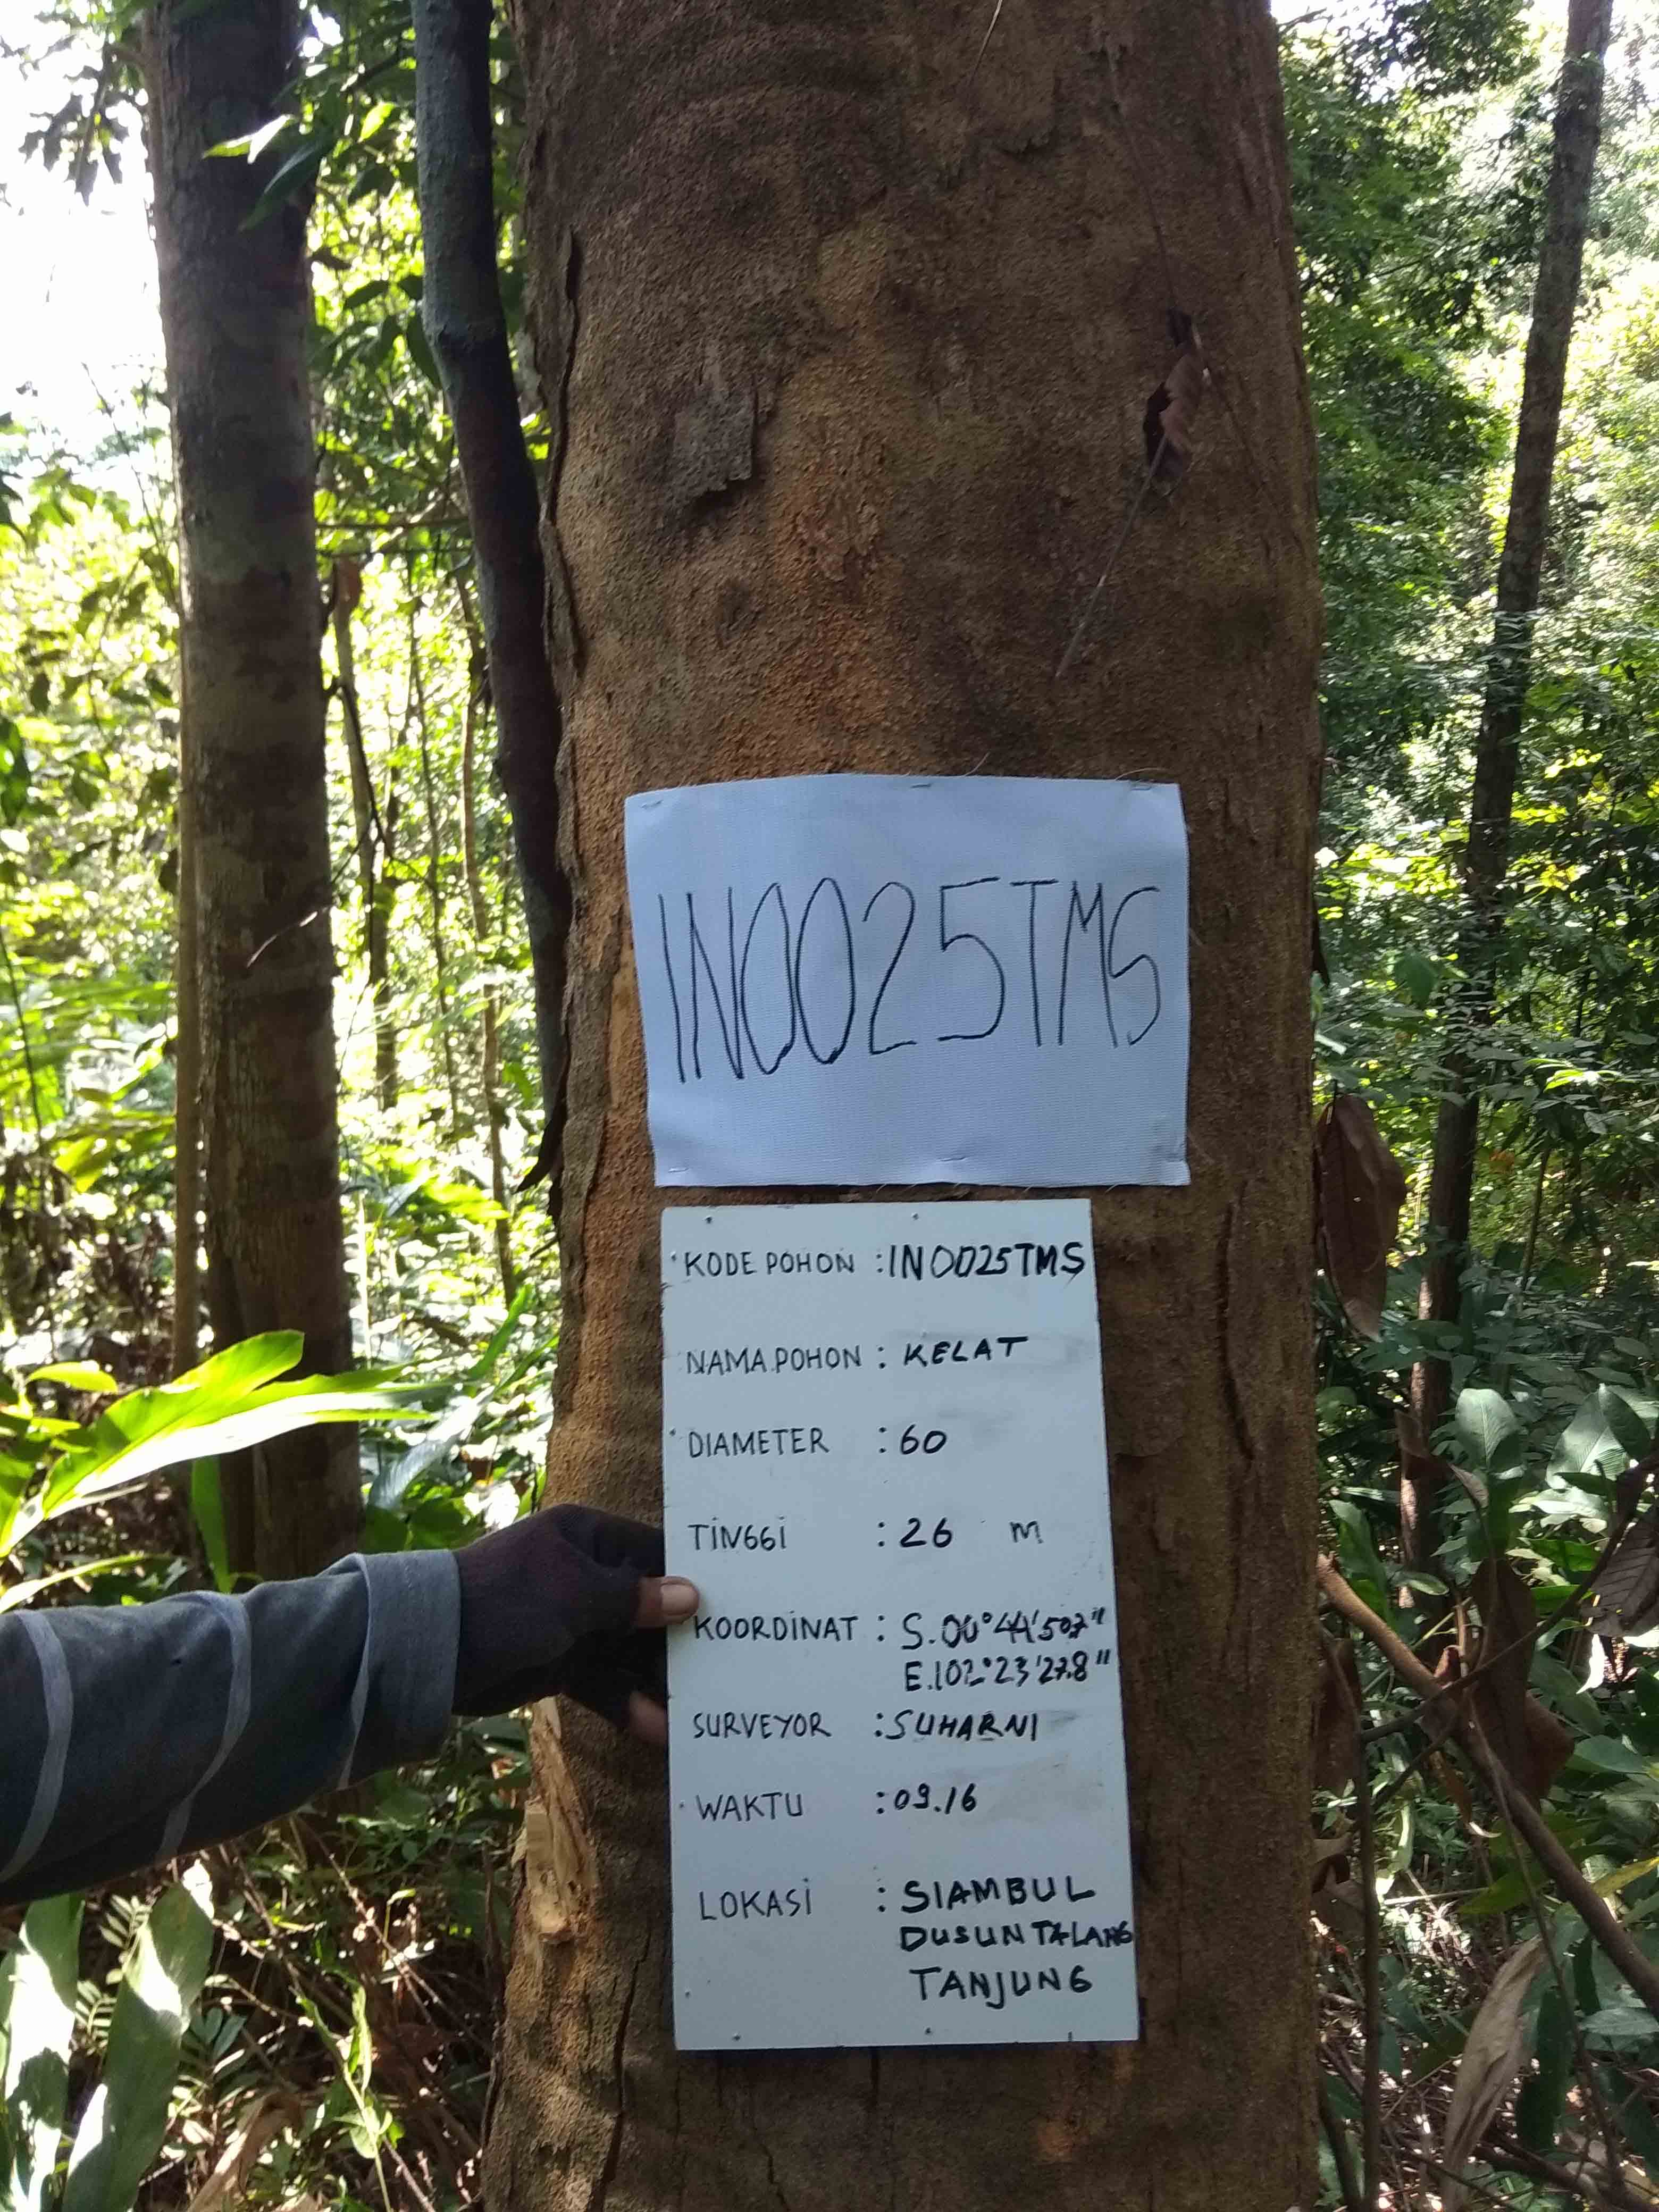 IN0025TMS
KODE POHON : IN0025TMS
NAMA POHON : KELAT
DIAMETER : 60
TINGGI : 26 m
KOORDINAT : S.00°44'50.7"
E.102°23'27.8"
SURVEYOR : SUHARNI
WAKTU : 09.16
LOKASI : SIAMBUL
DUSUN TALANG
TANJUNG